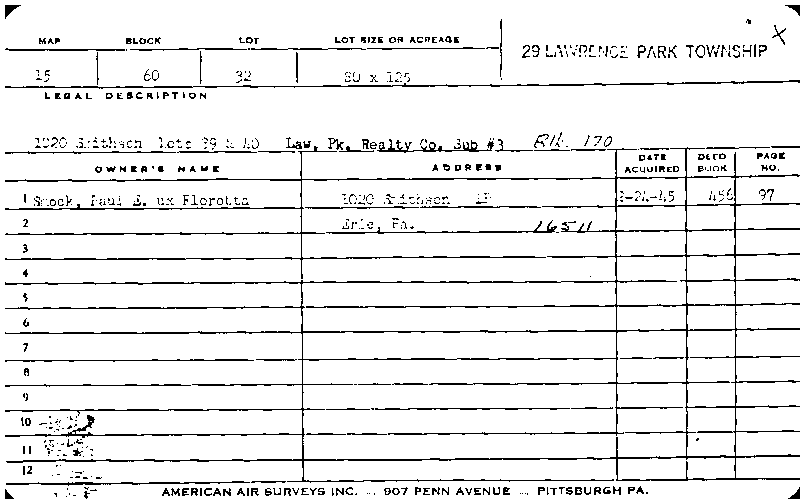 MAP BLOCK LOT LOT SIZE OR ACREAGE
29 LAWRENCE PARK TOWNSHIP X
15 60 32 80 x 125
LEGAL DESCRIPTION
1020 Smithson Lots 39 & 40 Law. Pk. Realty Co. Sub #3 170
OWNER'S NAME ADDRESS DATE ACQUIRED DEED BOOK PAGE NO.
1 Smock, Paul E. ux Floretta 1020 Smithson 456 97
2 Erie, Pa. 16511
3
4
5
6
7
8
9
10
11
12
AMERICAN AIR SURVEYS INC. ... 907 PENN AVENUE ... PITTSBURGH PA.